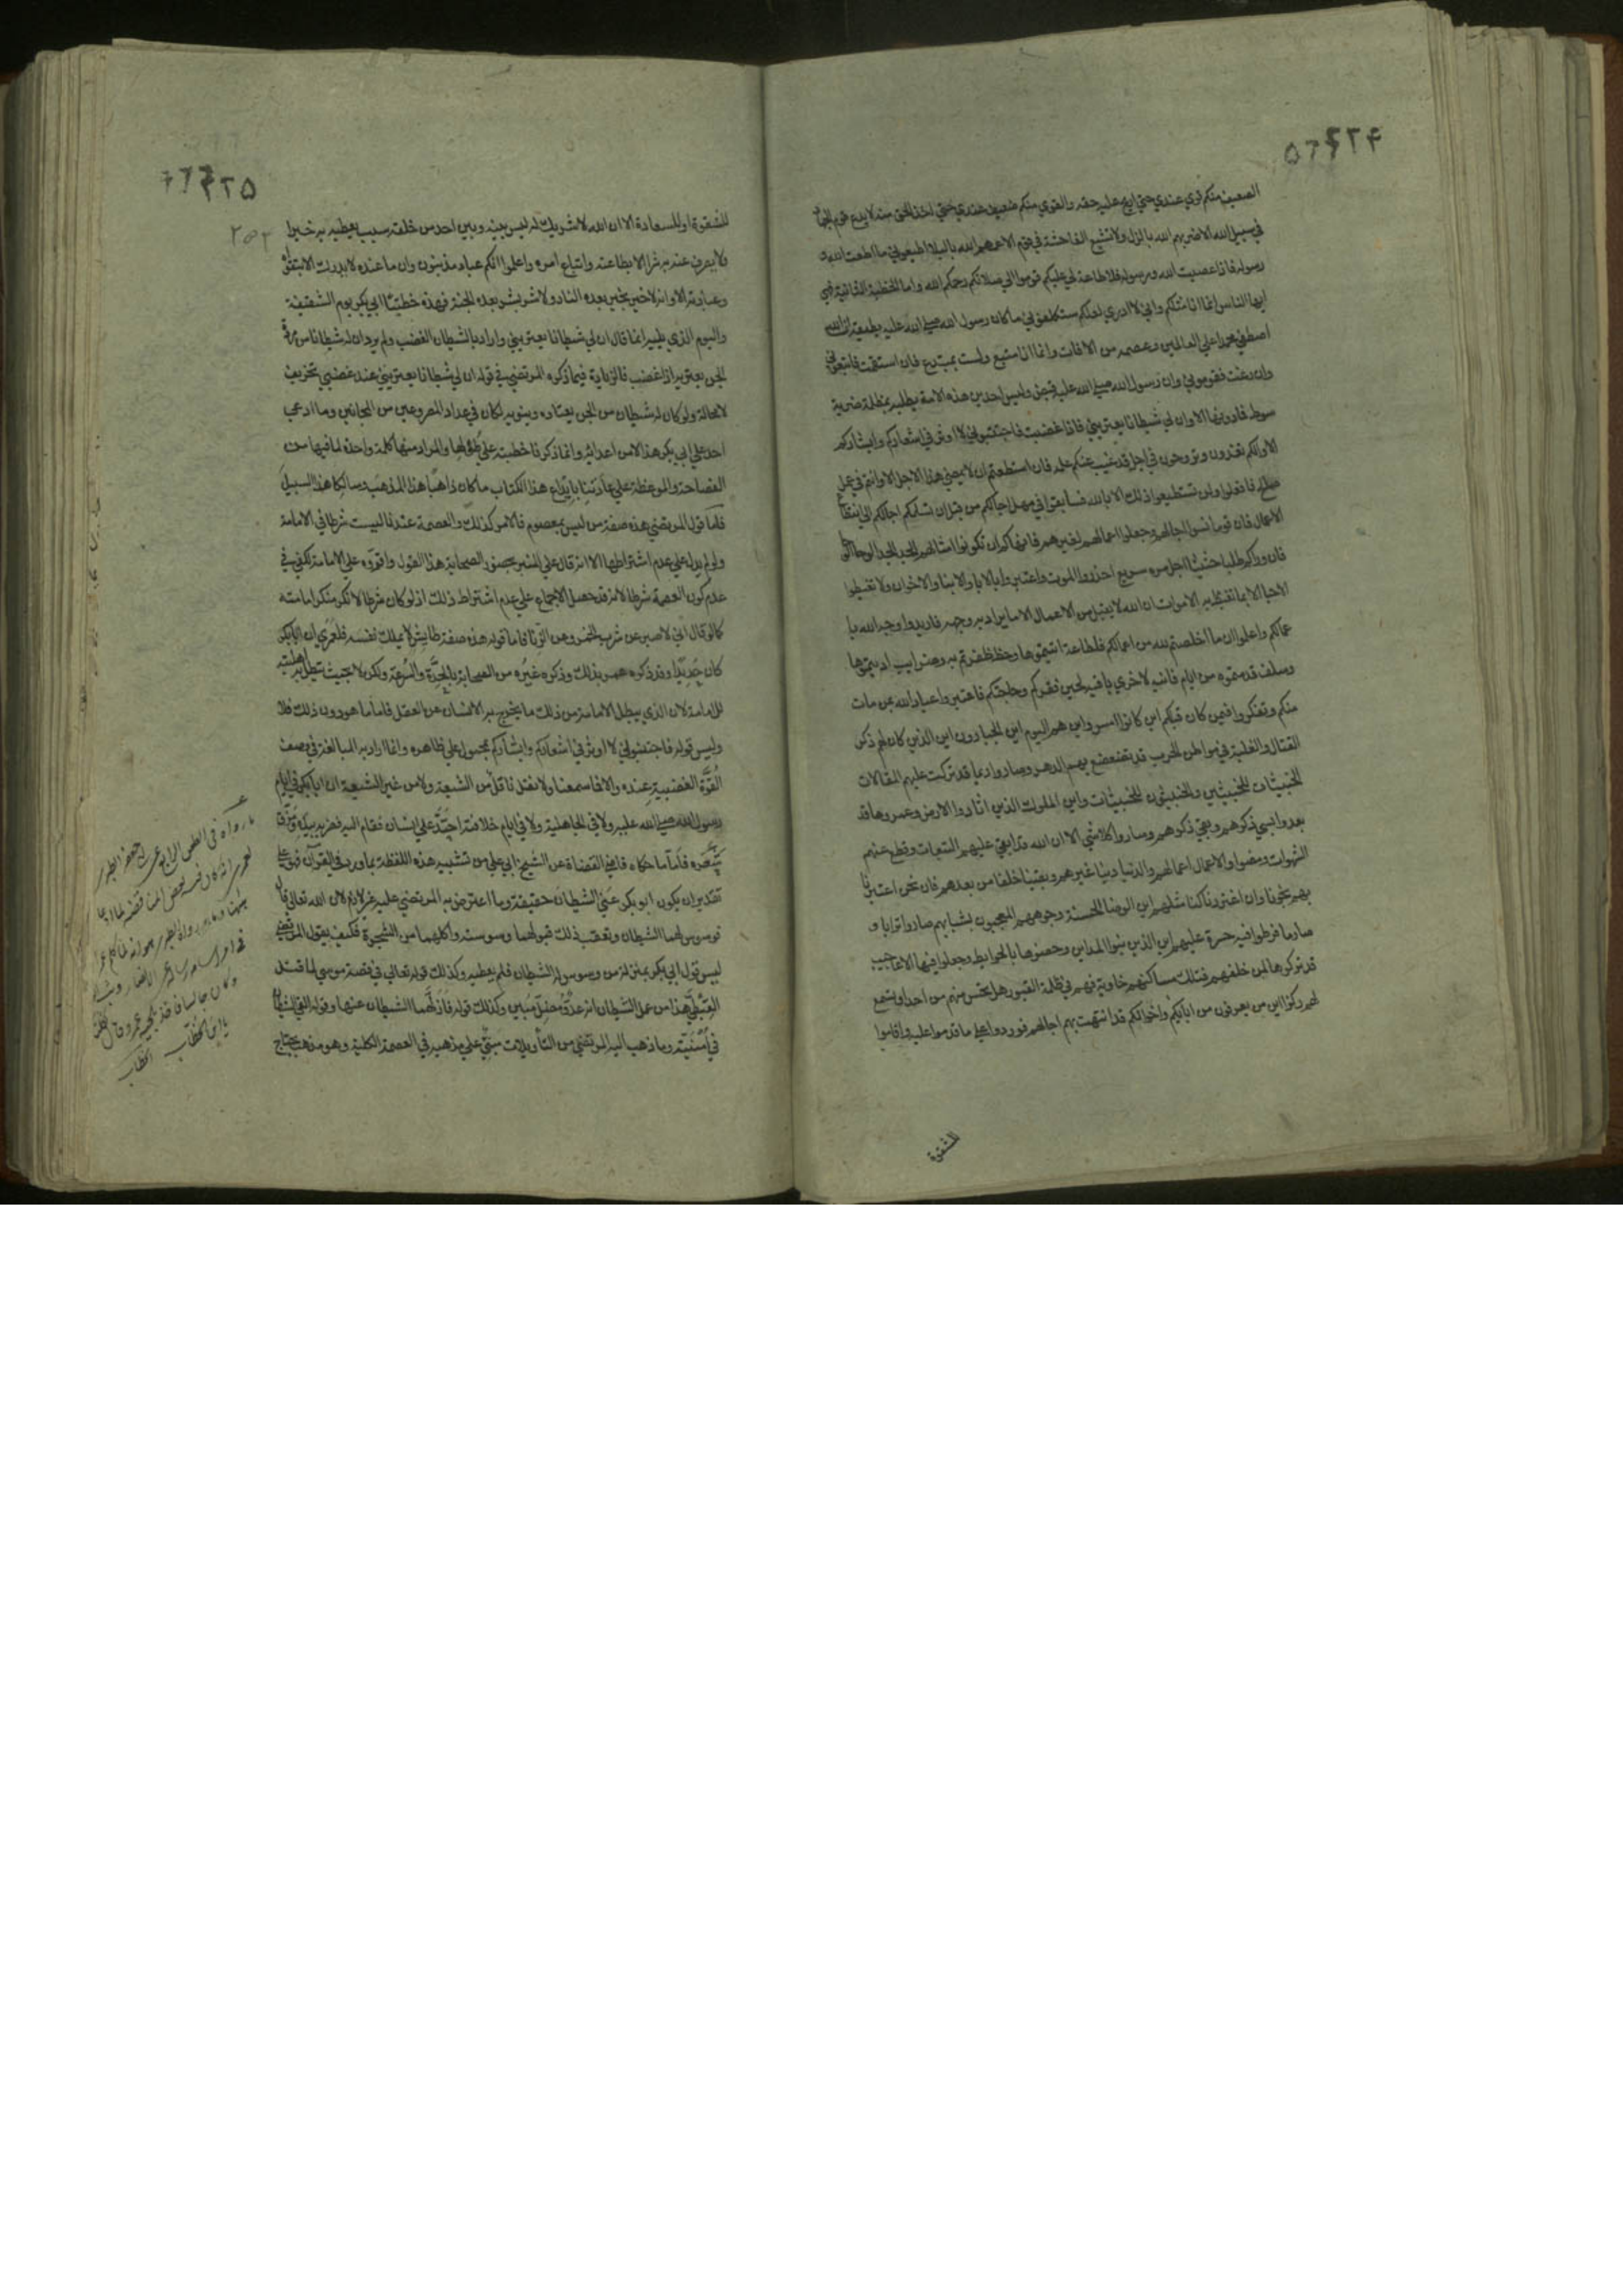 ۴۲۴
الضعيف منكم قوي عندي حتي اريح عليه حقه والقوي منكم ضعيف عندي حتي اخذ الحق منه لا يدع قوم الجهاد
في سبيل الله الا ضربهم الله بالذل ولا تشيع الفاحشة في قوم الا عمهم الله بالبلاء اطيعوني ما اطعت الله و
رسوله فاذا عصيت الله ورسوله فلا طاعة لي عليكم قوموا الي صلاتكم رحمكم الله واما الخطبة الثانية فهي
ايها الناس انما انا مثلكم واني لا ادري لعلكم ستكلفوني ما كان رسول الله صلي الله عليه يطيقه ان الله
اصطفي محمدا علي العالمين وعصمه من الافات وانما انا متبع ولست بمبتدع فان استقمت فاتبعوني
وان زغت فقوموني وان رسول الله صلي الله عليه قبض وليس احد من هذه الامة يطلبه بمظلمة ضربة
سوط فما دونها الا وان لي شيطانا يعتريني فاذا غضبت فاجتنبوني لا اوثر في اشعاركم وابشاركم
الا وانكم تغدون وتروحون في اجل قد غيب عنكم علمه فان استطعتم ان لا يمضي هذا الاجل الا وانتم في عمل
صالح فافعلوا ولن تستطيعوا ذلك الا بالله فسابقوا في مهل اجالكم من قبل ان تسلمكم اجالكم الي انقطاع
الاعمال فان قوما نسوا اجالهم وجعلوا اعمالهم لغيرهم فانهاكم ان تكونوا امثالهم الجد الجد الوحا الوحا
فان وراكم طالبا حثيثا اجل مره سريع احذروا الموت واعتبروا بالابا والابنا والاخوان ولا تغبطوا
الاحيا الا بما تغبط به الاموات ان الله لا يقبل من الاعمال الا ما يراد به وجهه فاريدوا وجه الله با
عمالكم واعلموا ان ما اخلصتم لله من اعمالكم فلطاعة اتيتموها وحظ ظفرتم به وضرايب اديتموها
وسلف قدمتموه من ايام فانيه لاخري باقيه لحين فقركم وحاجتكم فاعتبروا عباد الله بمن مات
منكم وتفكروا فيمن كان قبلكم اين كانوا امس واين هم اليوم اين الجبارون اين الذين كان لهم ذكر
القتال والغلبة في مواطن الحرب قد تضعضع بهم الدهر وصاروا رميما قد تركت عليهم المقالات
الخبيثات للخبيثين والخبيثون للخبيثات واين الملوك الذين اثاروا الارض وعمروها قد
بعدوا بسيئ ذكرهم وبقي ذكرهم وصاروا كلا شي الا ان الله قد ابقي عليهم التبعات وقطع عنهم
الشهوات ومضوا والاعمال اعمالهم والدنيا دنيا غيرهم وبقينا خلفا من بعدهم فان نحن اعتبرنا
بهم نجونا وان اغتررنا كنا مثلهم اين الوضا الحسنة وجوههم المعجبون بشبابهم صاروا ترابا و
صار ما فرطوا فيه حسرة عليهم اين الذين بنوا المداين وحصنوها بالحوايط وجعلوا فيها الاعاجيب
قد تركوها لمن خلفهم فتلك مساكنهم خاوية وهم في ظلمة القبور هل تحس منهم من احد او تسمع
لهم ركزا اين من تعرفون من ابايكم واخوانكم قد انتهت بهم اجالهم فوردوا علي ما قدموا عليه واقاموا
للشقوة
۴۲۵
للشقوة او للسعادة الا ان الله لا شريك له ليس بينه وبين احد من خلقه سبب يعطيه به خيرا
ولا يصرف عنه به شرا الا بطاعته واتباع امره واعلموا انكم عباد مذنبون وان ما عنده لا يدرك الا بتقواه
وعبادته الا وانه لا خير بخير بعده النار ولا شر بشر بعده الجنة فهذه خطبتا ابي بكر يوم السقيفة
واليوم الذي يليه انما قال ان لي شيطانا يعتريني واراد بالشيطان الغضب ولم يرد ان له شيطانا من مردة
الجن يعتريه اذا غضب فالزيادة فيما ذكره المرتضي في قوله ان لي شيطانا يعتريني عند غضبي تحريف
لا محالة ولو كان له شيطان من الجن يعتاده وينوبه لكان في عداد المصروعين من المجانين وما ادعي
احد علي ابي بكر هذا لا من اعدائه وانما ذكرنا خطبته علي طولها والمراد منها كلمة واحدة لما فيها من
الفصاحة والموعظة علي عادتنا بايداع هذا الكتاب ما كان ذاهبا هذا المذهب وسالكا هذا السبيل
فاما قول المرتضي هذه صفة من ليس بمعصوم فالامر كذلك والعصمة عندنا ليست شرطا في الامامة
ولو لم يدل علي عدم اشتراطها الا انه قال علي المنبر بحضور الصحابة هذا القول واقروه علي الامامة لكفي في
عدم كون العصمة شرطا لانه قد حصل الاجماع علي عدم اشتراط ذلك اذ لو كان شرطا لانكر منكر امامته
كما لو قال اني لا اصبر عن شرب الخمر وعن الزنا فاما قوله هذه صفة طايش لا يملك نفسه فلعمري ان ابا بكر
كان حديدا وقد ذكره عمر بذلك وذكره غيره من الصحابة بالحدة والسرعة ولكن لا بحيث تبطل به اهليته
للامامة لان الذي يبطل الامامة من ذلك ما يخرج به الانسان عن العقل فاما ما هو دون ذلك فلا
وليس قوله فاجتنبوني لا اوثر في اشعاركم وابشاركم محمول علي ظاهره وانما اراد به المبالغة في وصف
القوة الغضبية عنده والا فما سمعنا ولا نقل ناقل من الشيعة ولا من غير الشيعة ان ابا بكر في ايام
رسول الله صلي الله عليه ولا في الجاهلية ولا في ايام خلافته احتد علي انسان فقام اليه فضربه بيده ومزق
شعره فاما ما حكاه قاضي القضاة عن الشيخ ابي علي من تشبيه هذه اللفظة بما ورد في القرآن فهو علي
تقدير ان يكون ابو بكر عني الشيطان حقيقة وما اعترض به المرتضي عليه غير لازم لان الله تعالي قال
فوسوس لهما الشيطان وتعقب ذلك قبولهما وسوسته واكلهما من الشجرة فكيف يقول المرتضي
ليس قول ابي بكر بمنزلة من وسوس له الشيطان فلم يطعه وكذلك قوله تعالي في قصة موسي لما قتل
القبطي هذا من عمل الشيطان انه عدو مضل مبين وكذلك قوله فازلهما الشيطان عنها وقوله القي الشيطان
في امنيته وما ذهب اليه المرتضي من التأويلات مبني علي مذهبه في العصمة الكلية وهو مذهب يحتاج
وكان جالسا فاخذ بلحية عمر وقال
يا ابن الخطاب